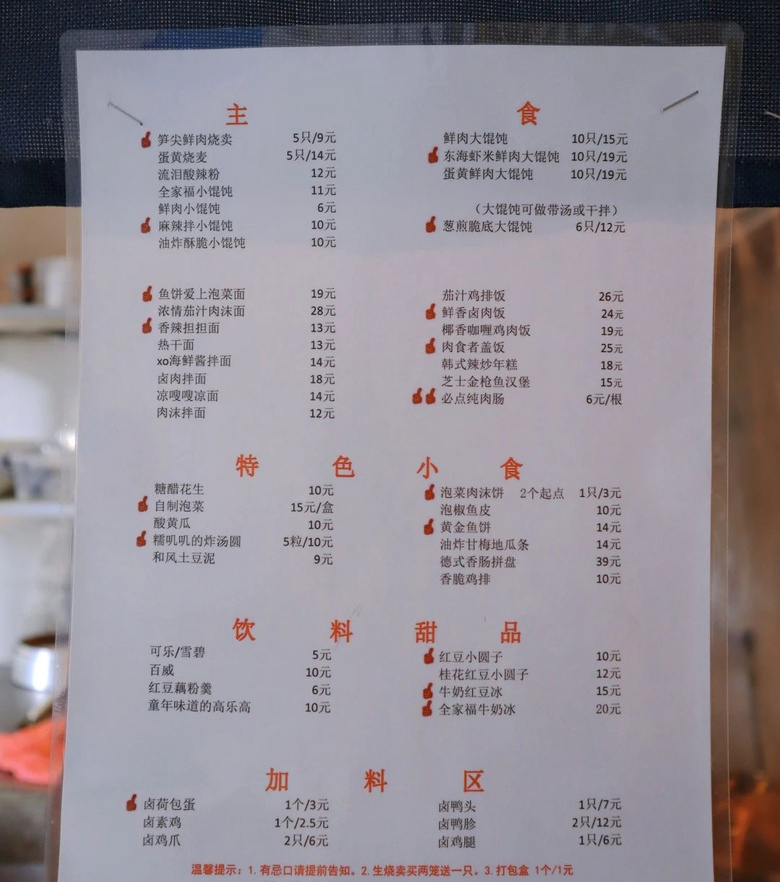 主 食
笋尖鲜肉烧卖 5只/9元
蛋黄烧麦 5只/14元
流泪酸辣粉 12元
全家福小馄饨 11元
鲜肉小馄饨 6元
麻辣拌小馄饨 10元
油炸酥脆小馄饨 10元
鲜肉大馄饨 10只/15元
东海虾米鲜肉大馄饨 10只/19元
蛋黄鲜肉大馄饨 10只/19元
（大馄饨可做带汤或干拌）
葱煎脆底大馄饨 6只/12元
鱼饼爱上泡菜面 19元
浓情茄汁肉沫面 28元
香辣担担面 13元
热干面 13元
xo海鲜酱拌面 14元
卤肉拌面 18元
凉嗖嗖凉面 14元
肉沫拌面 12元
茄汁鸡排饭 26元
鲜香卤肉饭 24元
椰香咖喱鸡肉饭 19元
肉食者盖饭 25元
韩式辣炒年糕 18元
芝士金枪鱼汉堡 15元
必点纯肉肠 6元/根
特 色 小 食
糖醋花生 10元
自制泡菜 15元/盒
酸黄瓜 10元
糯叽叽的炸汤圆 5粒/10元
和风土豆泥 9元
泡菜肉沫饼 2个起点 1只/3元
泡椒鱼皮 10元
黄金鱼饼 14元
油炸甘梅地瓜条 14元
德式香肠拼盘 39元
香脆鸡排 10元
饮 料 甜 品
可乐/雪碧 5元
百威 10元
红豆藕粉羹 6元
童年味道的高乐高 10元
红豆小圆子 10元
桂花红豆小圆子 12元
牛奶红豆冰 15元
全家福牛奶冰 20元
加 料 区
卤荷包蛋 1个/3元
卤素鸡 1个/2.5元
卤鸡爪 2只/6元
卤鸭头 1只/7元
卤鸭胗 2只/12元
卤鸡腿 1只/6元
温馨提示：1.有忌口请提前告知。2.生烧卖买两笼送一只。3.打包盒 1个/1元